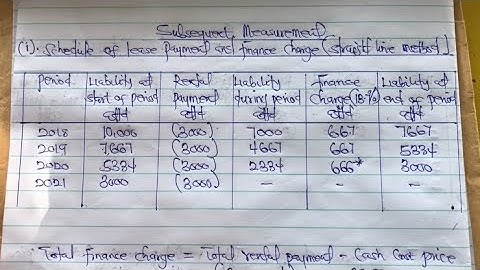 Subsequent Measurement
(i). Schedule of lease payment and finance charge (straight line method)
Period Liability at start of period Rental payment Liability during period Finance Charge (18%) Liability at end of period
2018 10,000 (3000) 7000 667 7667
2019 7,667 (3000) 4667 667 5334
2020 5334 (3000) 2334 666* 3000
2021 3000 (3000) - - -
Total finance charge = Total rental payment - Cash Cost price